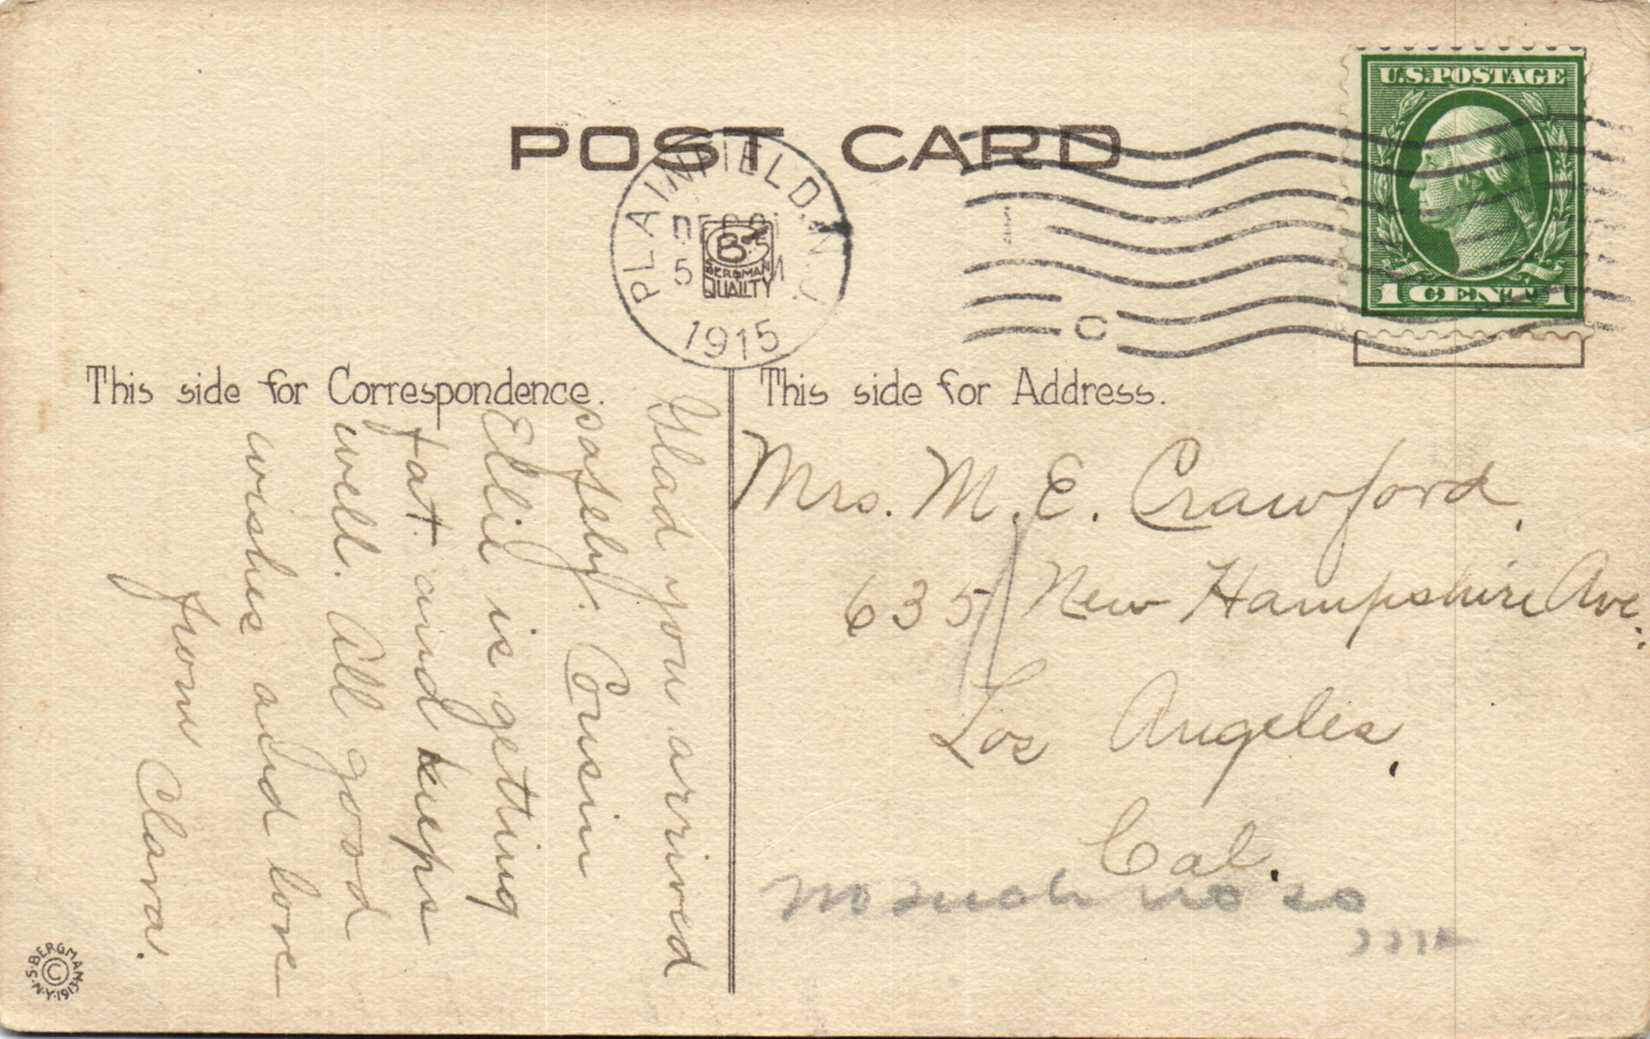 POST CARD
U.S. POSTAGE
1 CENT 1
PLAINFIELD, N.J.
5 M
1915
B
BERGMAN
QUALITY
C
This side for Correspondence.
Glad you arrived
safely. Cousin
Ellie is getting
fat and keeps
well. All good
wishes and love
from Clara.
This side for Address.
Mrs. M. E. Crawford,
635 New Hampshire Ave.
Los Angeles,
Cal.
no such no
S. BERGMAN N.Y. 1913
©